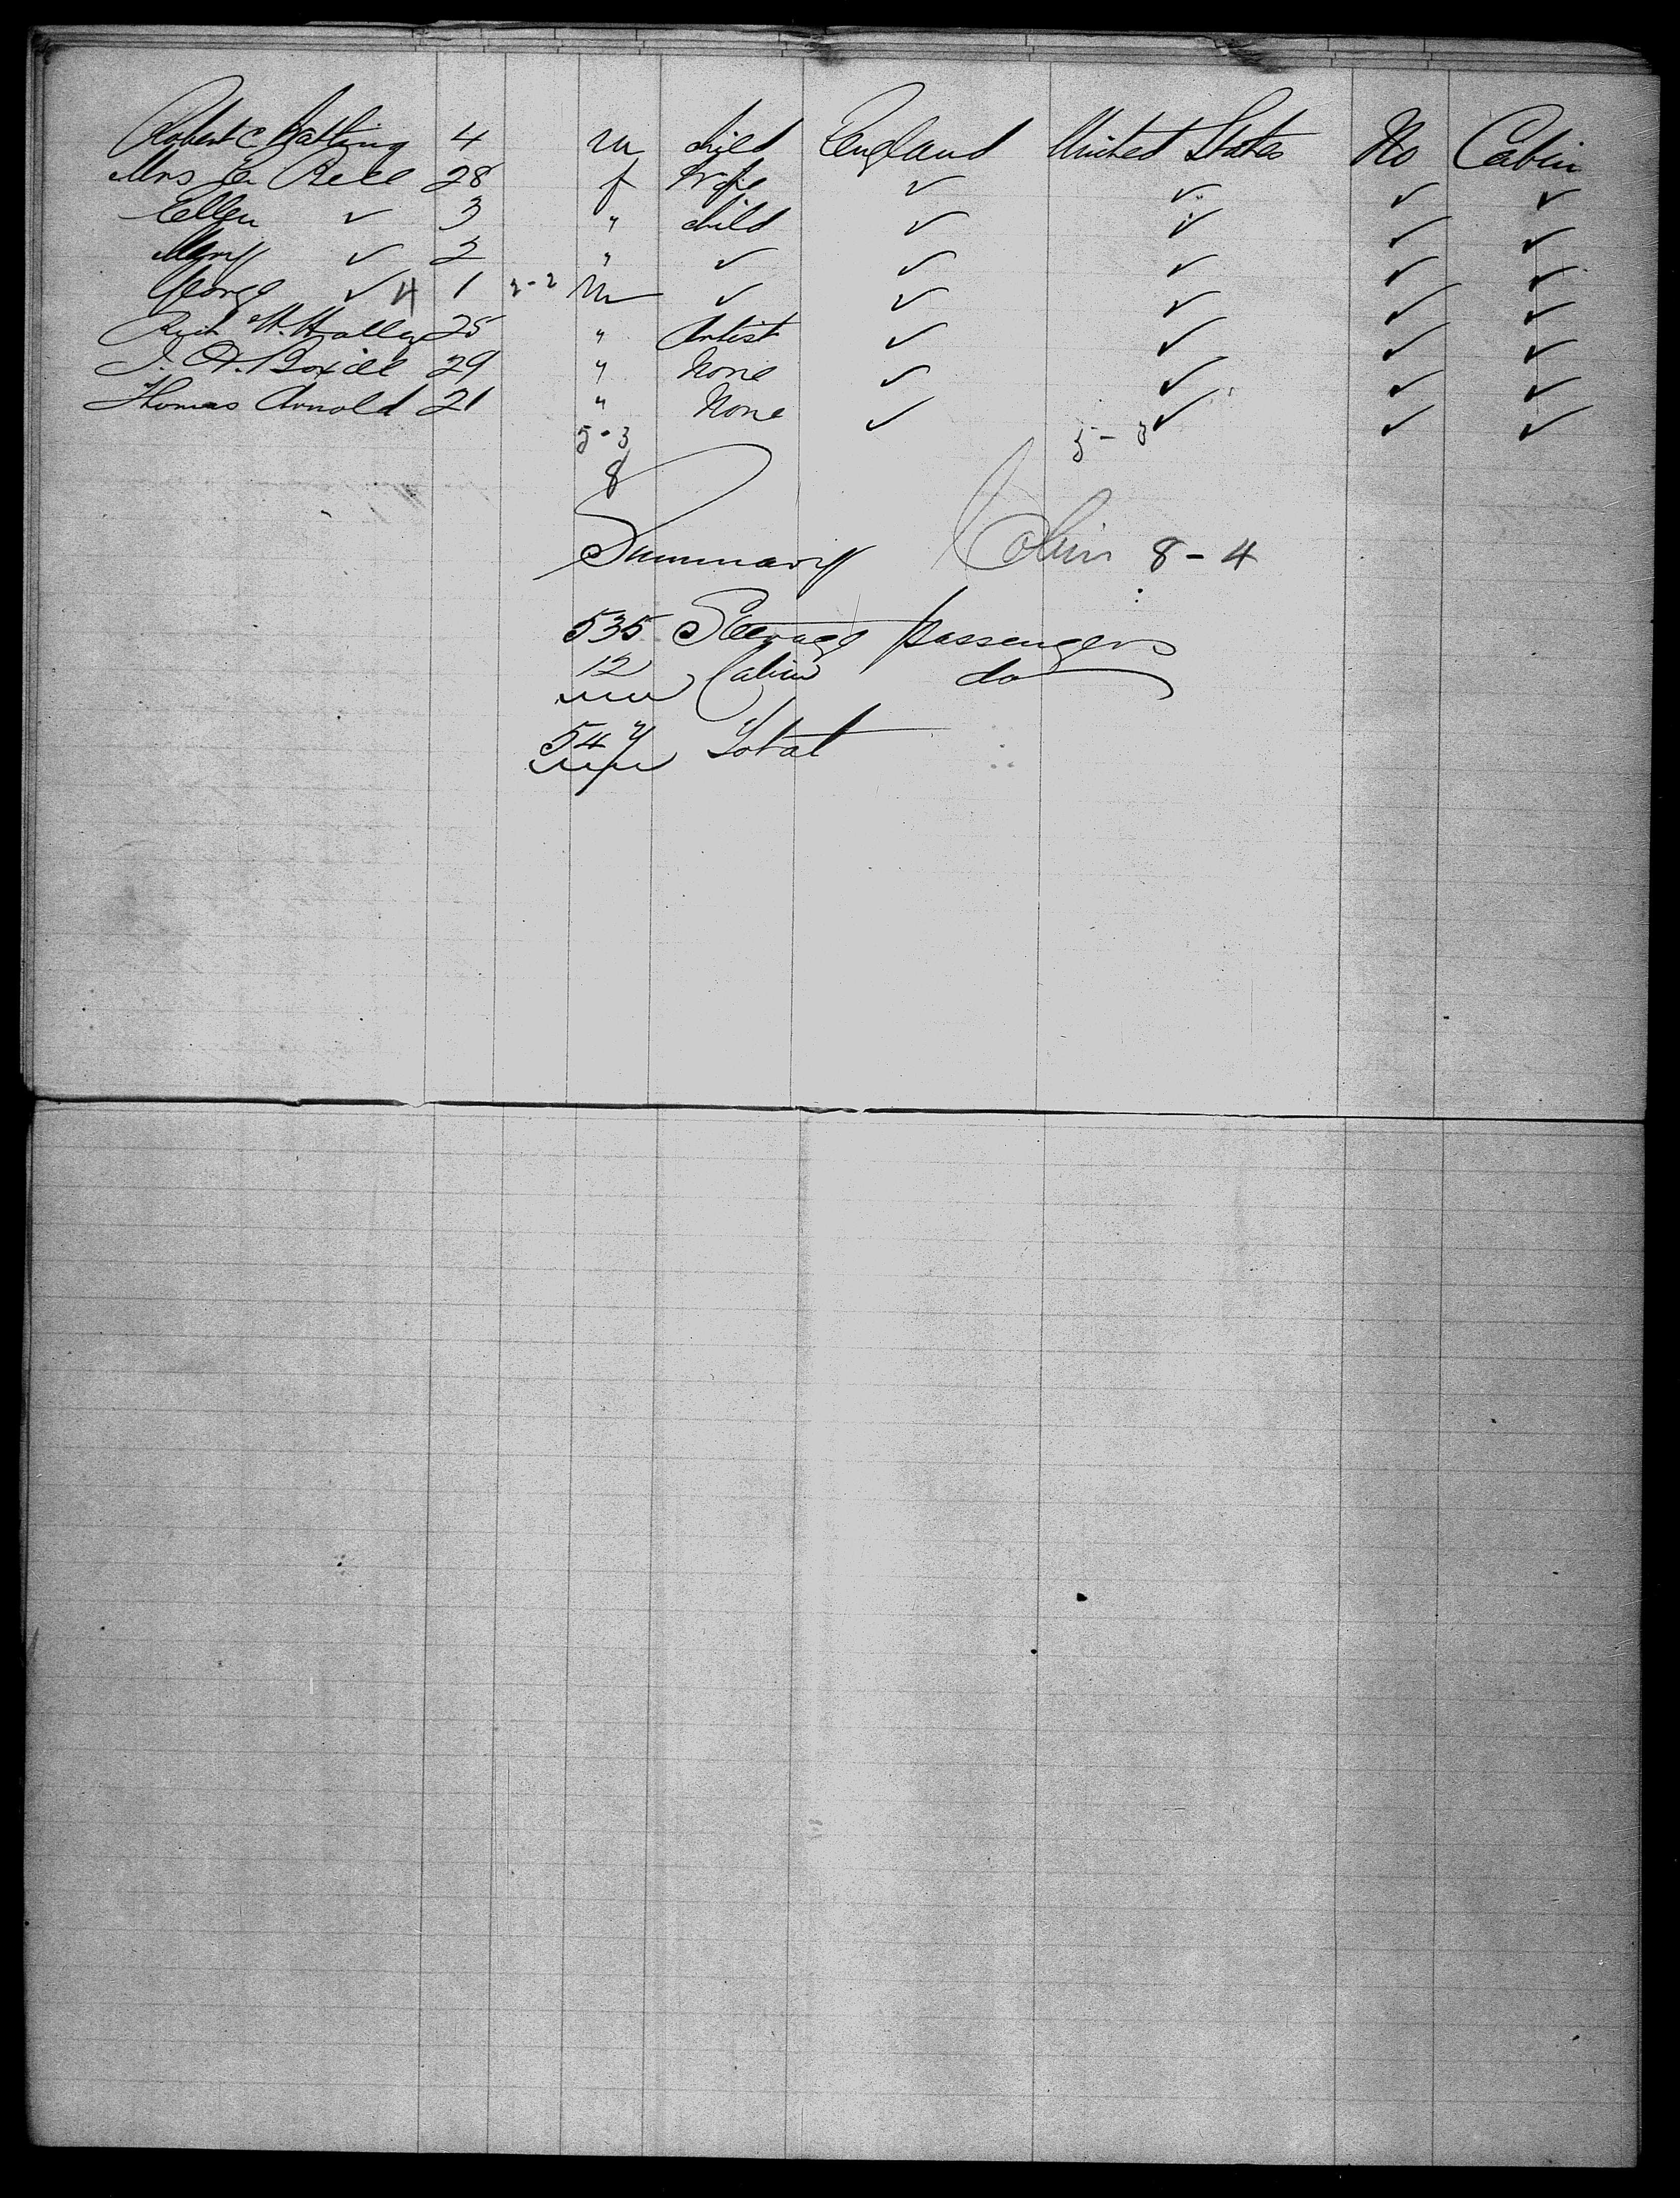 Robert C Batting 4 m child England United States No Cabin
Mrs Bell 28 f Wife ✓ ✓ ✓ ✓
Ellen ✓ 3 " child ✓ ✓ ✓ ✓
Mary ✓ 2 " ✓ ✓ ✓ ✓ ✓
George ✓ 4 1 2-2 M ✓ ✓ ✓ ✓ ✓
Rich 25 " Artist ✓ ✓ ✓ ✓
29 " None ✓ ✓ ✓ ✓
Thomas Arnold 21 " None ✓ ✓ ✓ ✓
5-3 5-3
8
Summary Cabin 8-4
535 Steerage passengers
12 Cabin do
547 Total